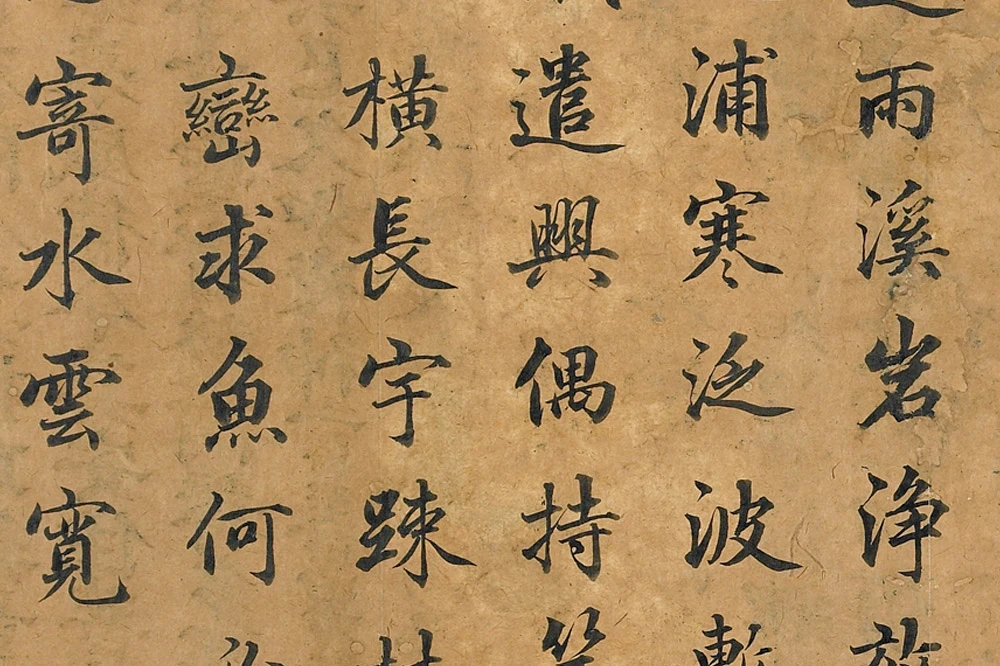 雨溪岩浄
浦寒泛波
遣興偶持
横長宇踈
巒求魚何
寄水雲寛